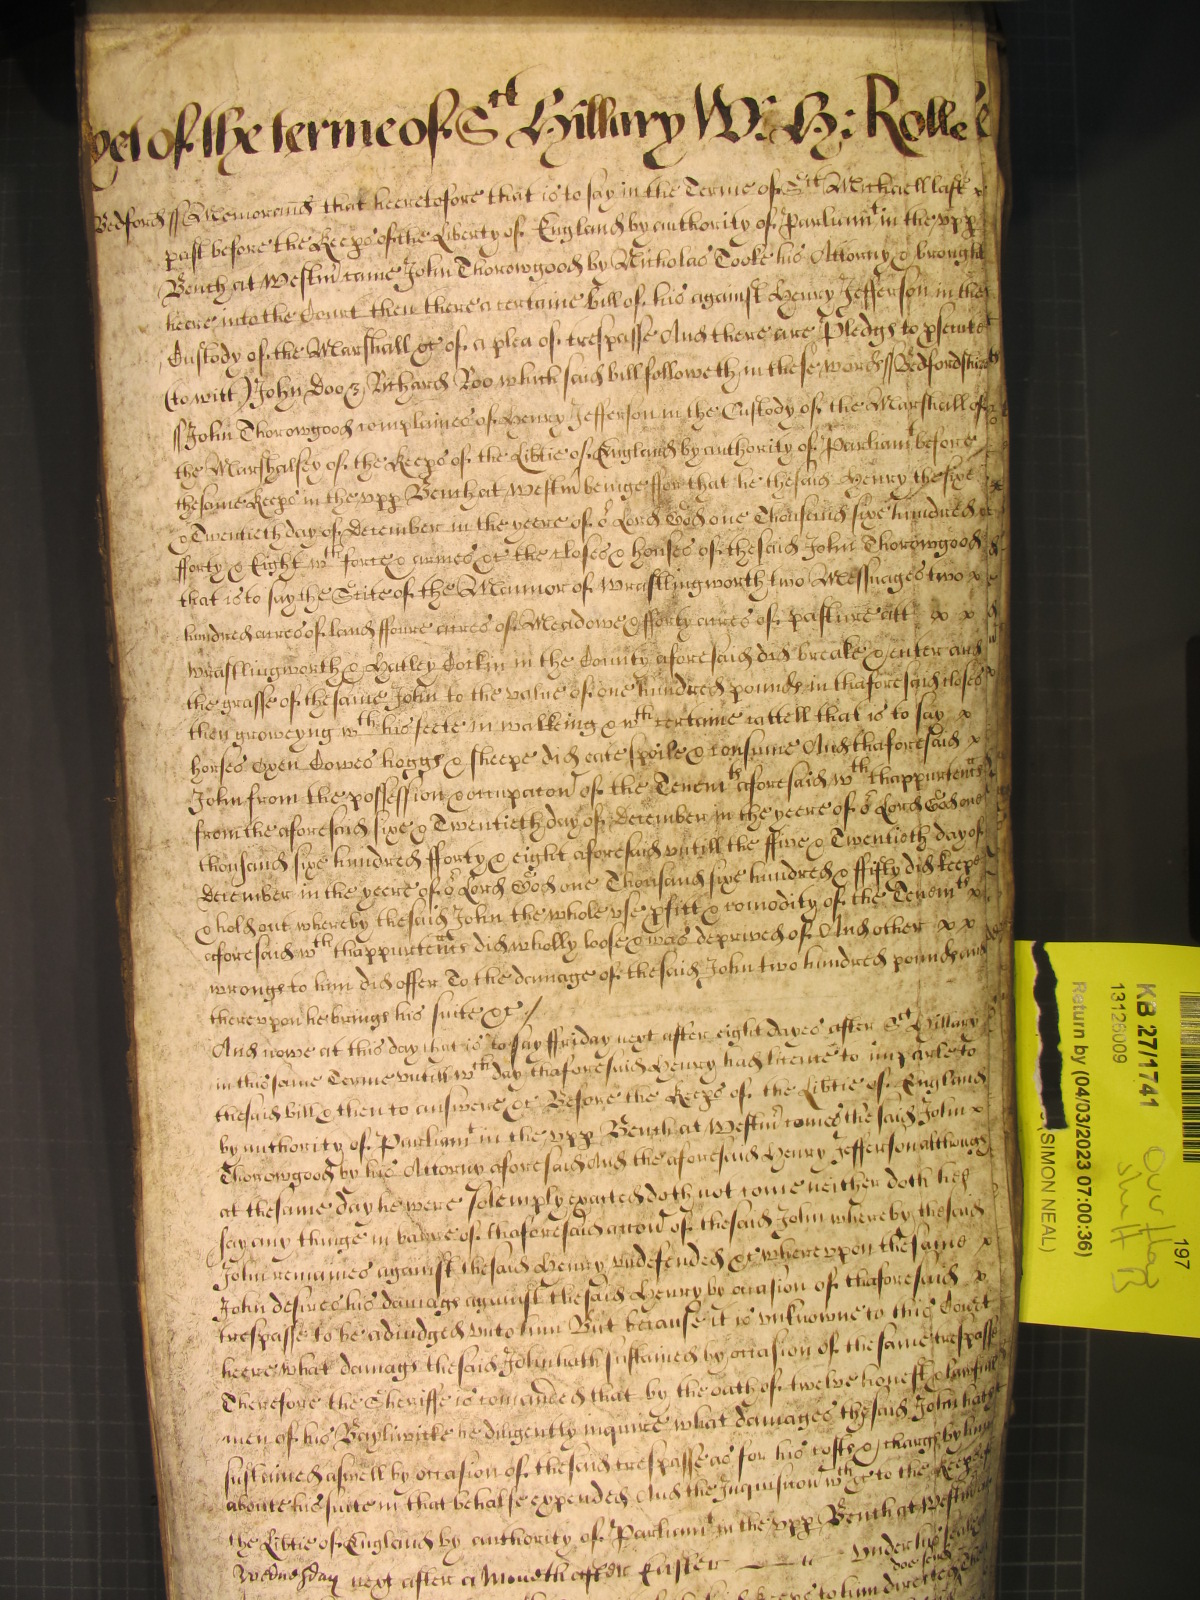 yet of the terme of St Hillary W: H: Rolle
Bedford ss Memorand that heeretofore that is to say in the Terme of St Michaell last x
past before the Keeps of the Liberty of England by authority of Parliamt in the vpp
Bench at Westm came John Thorowgood by Nicholas Tooke his Attorny & brought
heere into the Court then there a certaine bill of his against Henry Jefferson in the
Custody of the Marshall &c of a plea of trespasse And there are Pledgs to psecute
(to witt) John Doo & Richard Roo which said bill followeth in these words ss Bedfordshire
ss John Thorowgood complaines of Henry Jefferson in the Custody of the Marshall of
the Marshalsey of the Keeps of the Libtie of England by authority of Parliamt before
the same Keeps in the vpp Bench at Westm beinge ffor that he the said Henry the sixe
& Twentieth day of December in the yeere of or Lord God one Thousand sixe hundred
fforty & Eight wth force & armes &c the closes & houses of the said John Thorowgood
that is to say the Scite of the Mannor of Wrastlingworth two Messuages two x
hundred acres of land ffoure acres of Meadowe & fforty acres of pasture att x x
Wrastlingworth & Hatley Cockin in the County aforesaid did breake & enter and
the grasse of the same John to the value of one hundred pounds in thaforesaid closes
then groweyng wth his feete in walking & wth certaine cattell that is to say x
horses Oxen Cowes hoggs & sheepe did eate spoile & consume And thaforesaid x
John from the possession & occupacon of the Tenemts aforesaid wth thappurtencs
from the aforesaid sixe & Twentieth day of December in the yeere of or Lord God one
thousand sixe hundred fforty & eight aforesaid vntill the ffive & Twentieth day of
December in the yeere of or Lord God one Thousand sixe hundred & ffifty did keepe
& hold out whereby the said John the whole vse pfitt & comodity of the Tenemts x
aforesaid wth thappurtencs did wholly loose & was deprived of And other x x
wrongs to him did offer To the damage of the said John two hundred pounds and
therevpon he brings his suite &c /
And nowe at this day that is to say ffriday next after eight dayes after St Hillary
in this same Terme vntill wch day thaforesaid Henry had licence to imparle to
the said bill & then to answere &c Before the Keeps of the Libtie of England
by authority of Parliamt in the vpp Bench at Westm comes the said John x
Thorowgood by his Attorny aforesaid And the aforesaid Henry Jefferson although
at the same day he were solemply exacted doth not come neither doth hee
say any thinge in barre of thaforesaid accon of the said John whereby the said
John remaines against the said Henry vndefended &c wherevpon the same x
John desires his damags against the said Henry by occasion of thaforesaid x
trespasse to be adiudged vnto him But because it is unknowne to this Court
heere what damags the said John hath sustained by occasion of the same trespasse
Therefore the Sheriffe is comanded that by the oath of twelve honest & lawfull
men of his Bayliwicke he diligently inquire what damages the said John hath
sustained aswell by occasion of the said trespasse as for his costs & charges by him
aboute his suite in that behalfe expended And the Inquisition wch &c to the Keeps of
the Libtie of England by authority of Parliamt in the vpp Bench at Westm on
Wednesday next after a Moneth after Easter under his seale
doe send
Keeps to him directed
KB 27/1741
13126009
Return by (04/03/2023 07:00:36)
(SIMON NEAL)
197